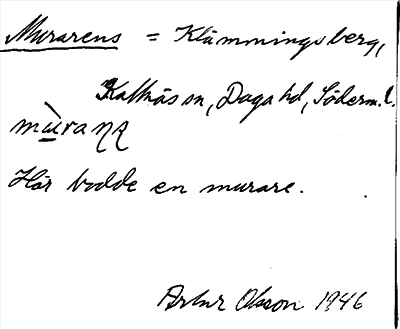 Murarens = Klämmingsberg,
Kattnäs sn, Daga hd, Söderm. l.
mùrans
Här bodde en murare.
Artur Olsson 1946